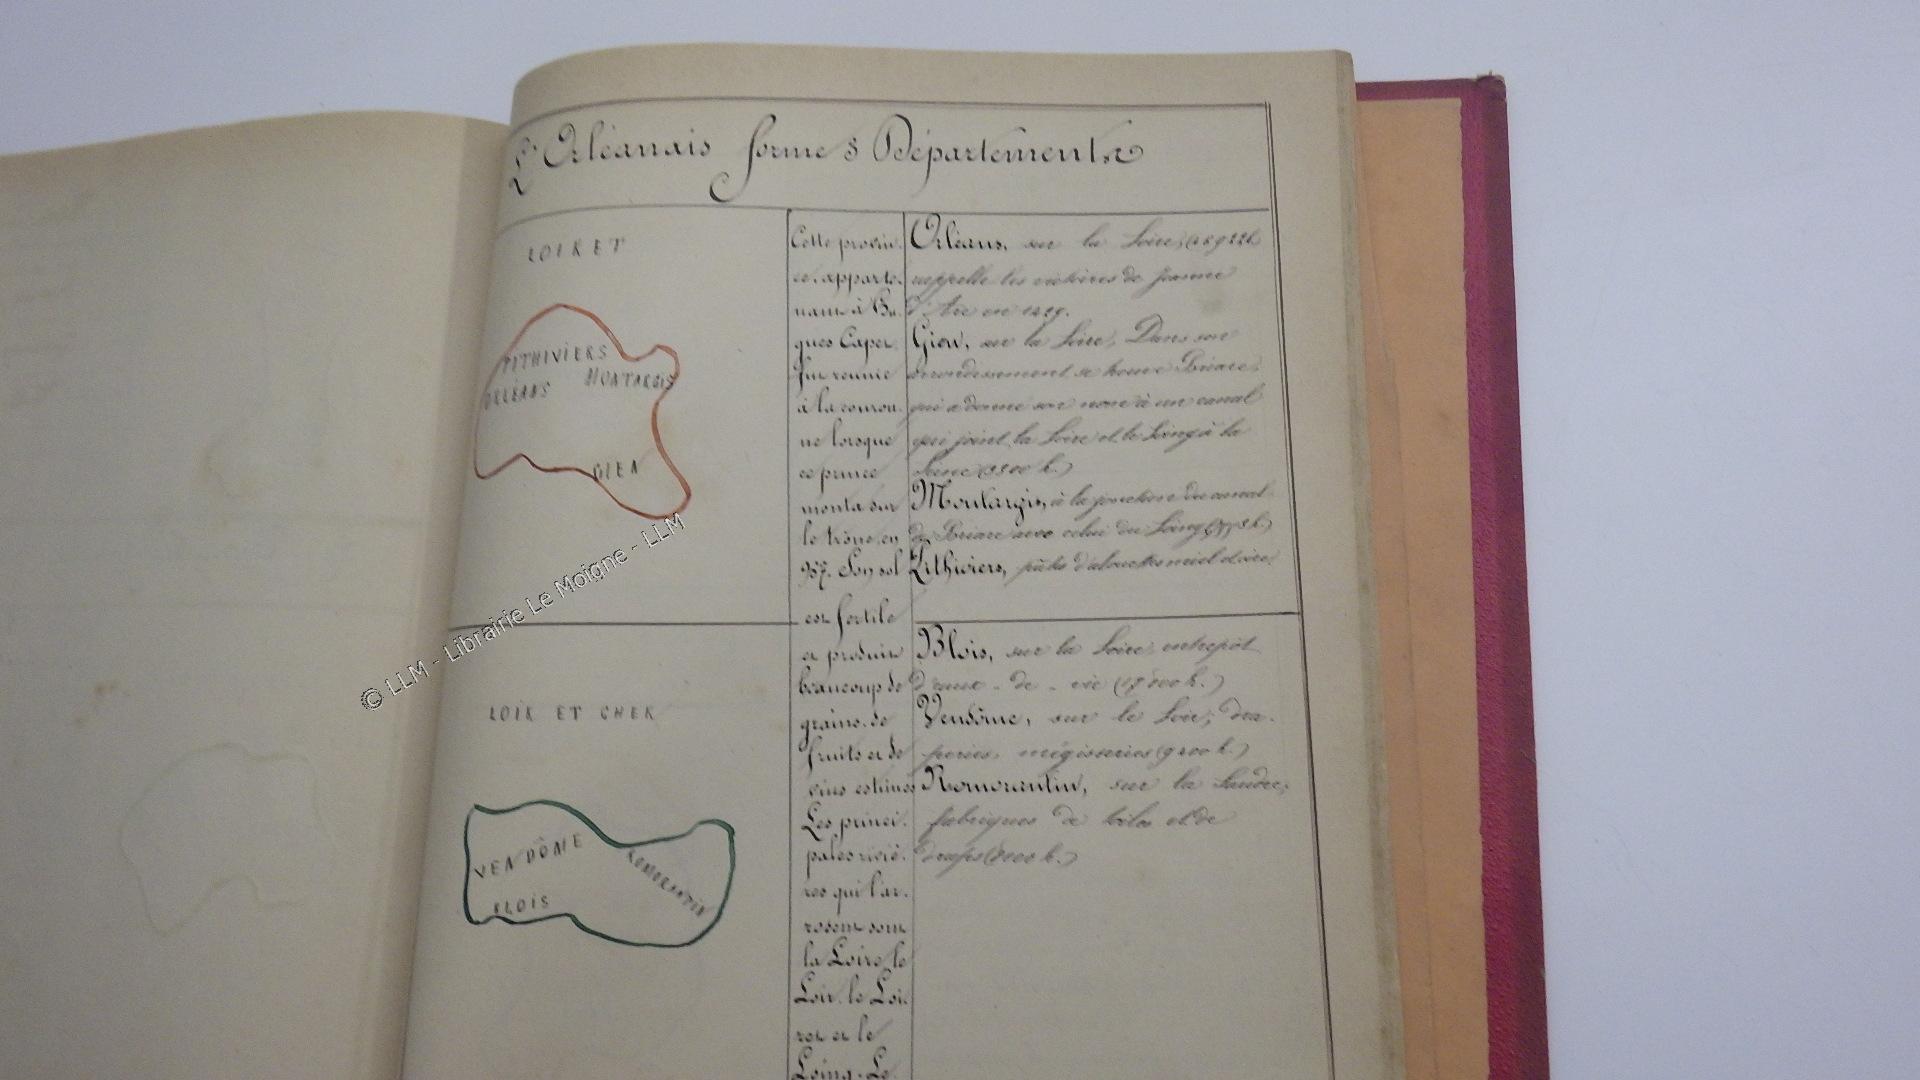 L'Orléanais forme 3 Départements
LOIRET
PITHIVIERS
ORLÉANS MONTARGIS
GIEN
LOIR ET CHER
VENDÔME
ROMORANTIN
BLOIS
Cette provin-
ce apparte-
nant à Hu-
gues Capet
fut réunie
à la couron-
ne lorsque
ce prince
monta sur
le trône, en
987. Son sol
est fertile
et produit
beaucoup de
grains, de
fruits et de
vins estimés
Les princi-
pales riviè-
res qui l'ar-
rosent sont
la Loire, le
Loir, le Loi-
ret et le
Loing. Le
Orléans, sur la Loire,
rappelle les victoires de Jeanne
d'Arc en 1429.
Gien, sur la Loire, Dans son
arrondissement se trouve Briare,
qui a donné son nom à un canal
qui joint la Loire et le Loing à la
Seine
Montargis, à la jonction du canal
de Briare avec celui du Loing
Pithiviers, pâtés d'alouettes miel et cire
Blois, sur la Loire, entrepôt
d'eaux-de-vie
Vendôme, sur le Loir, dra-
peries, mégisseries (9200 h.)
Romorantin, sur la Sauldre,
fabriques de toiles et de
draps
© LLM - Librairie Le Moigne - LLM